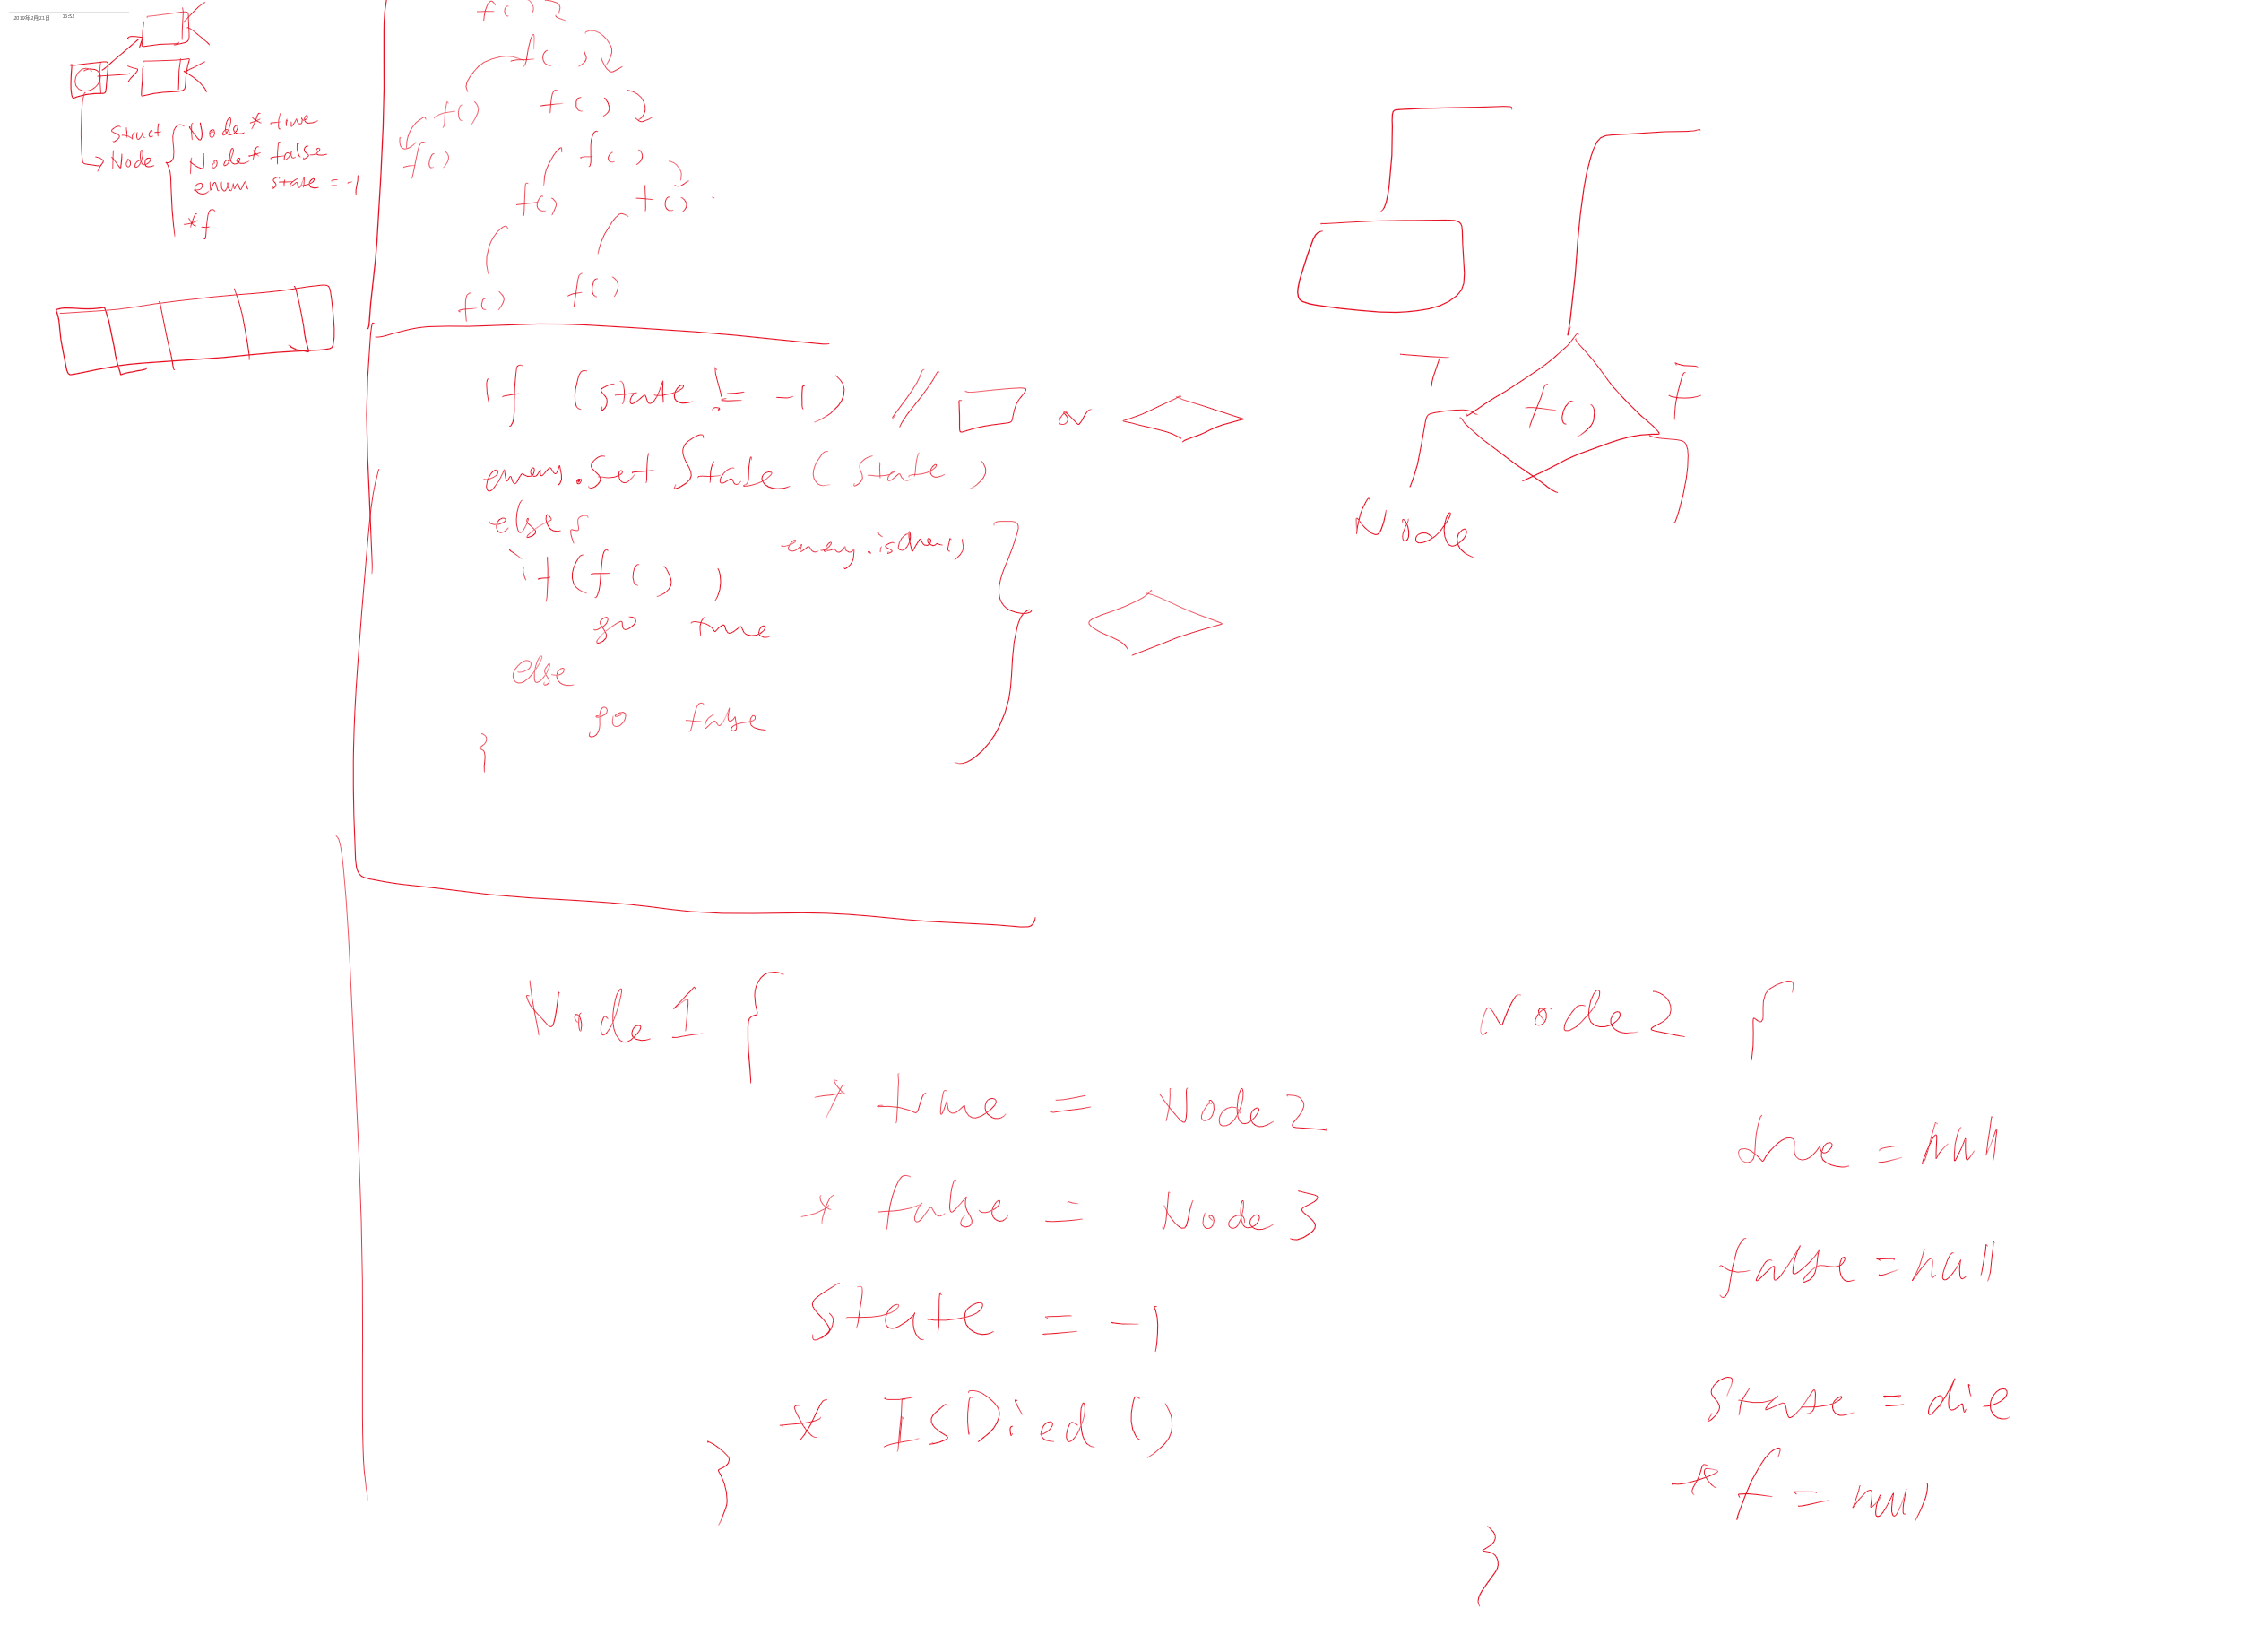 2019年2月21日 11:52
struct Node* true
Node Node* false
enum state = -1
*f
f()
f()
f() f()
f() f()
f() f()
f() f()
if (state != -1) // or
enemy.SetState(state)
else {
if (f()) enemy.isdie()
go true
else
go false
}
T F
f()
Node
Node1 {
* true = Node2
* false = Node3
State = -1
* IsDied()
}
Node2 {
true = null
false = null
State = die
*f = null
}